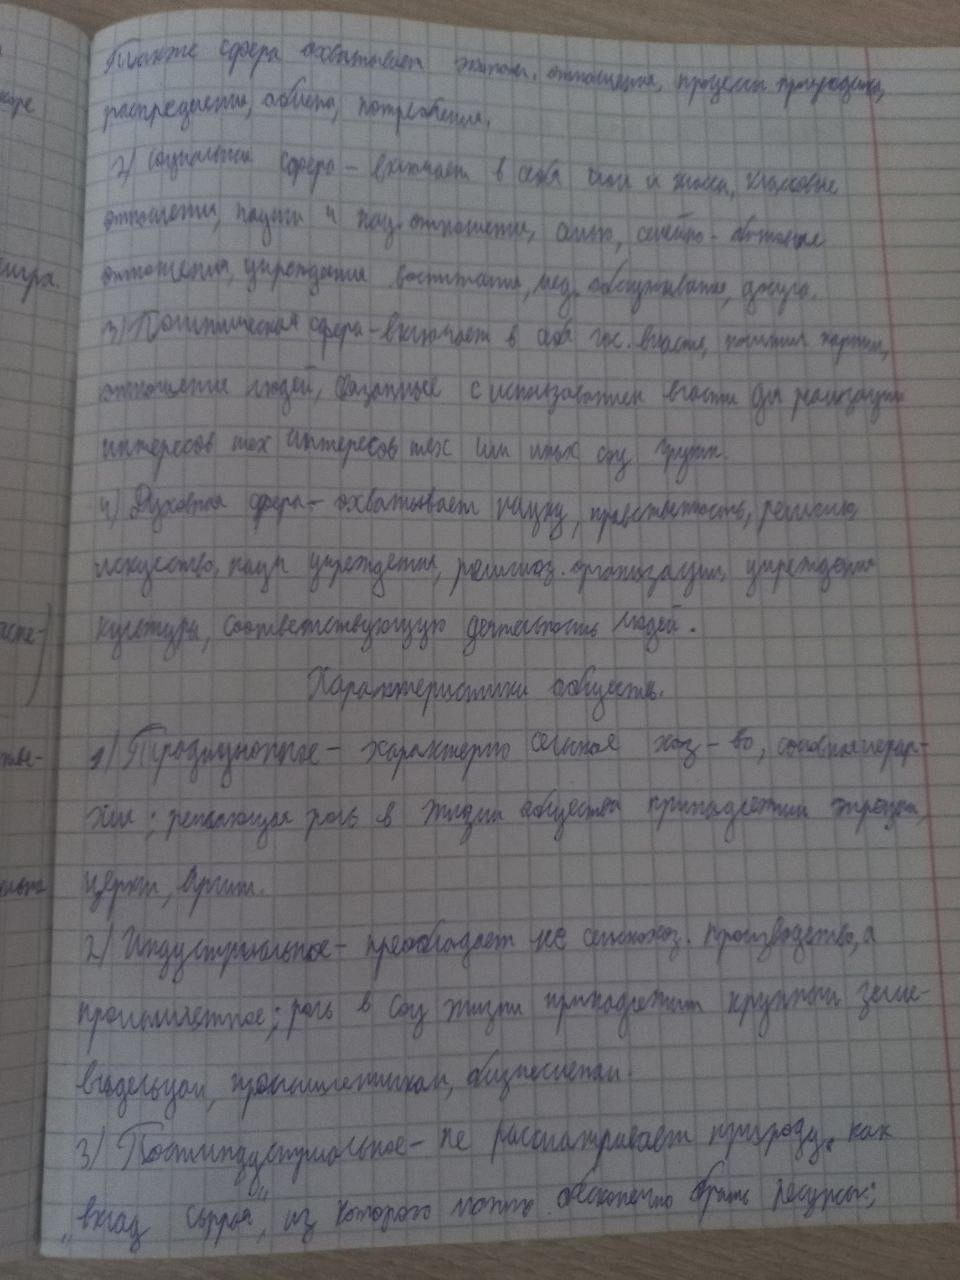 Также сфера охватывает эконом. отношения, процессы производства,
распределения, обмена, потребления.
2) Социальная сфера – включает в себя слои и классы, классовые
отношения, нации и нац. отношения, семью, семейно-бытовые
отношения, учреждения воспитания, мед. обслуживания, досуга.
3) Политическая сфера – включает в себя гос. власть, полит. партии,
отношения людей, связанные с использованием власти для реализации
интересов тех интересов тех или иных соц групп.
4) Духовная сфера – охватывает науку, нравственность, религию,
искусство, науч учреждения, религиоз. организации, учреждения
культуры, соответствующую деятельность людей.
Характеристики обществ.
1) Традиционное – характерно сельское хоз-во, сословная иерар-
хия; решающая роль в жизни общества принадлежит жрецам,
церкви, армии.
2) Индустриальное – преобладает не сельскохоз. производство, а
промышленное; роль в соц жизни принадлежит крупным земле-
владельцам, промышленникам, бизнесменам.
3) Постиндустриальное – не рассматривает природу, как
„вклад сырья", из которого можно бесконечно брать ресурсы;
коре
сигра.